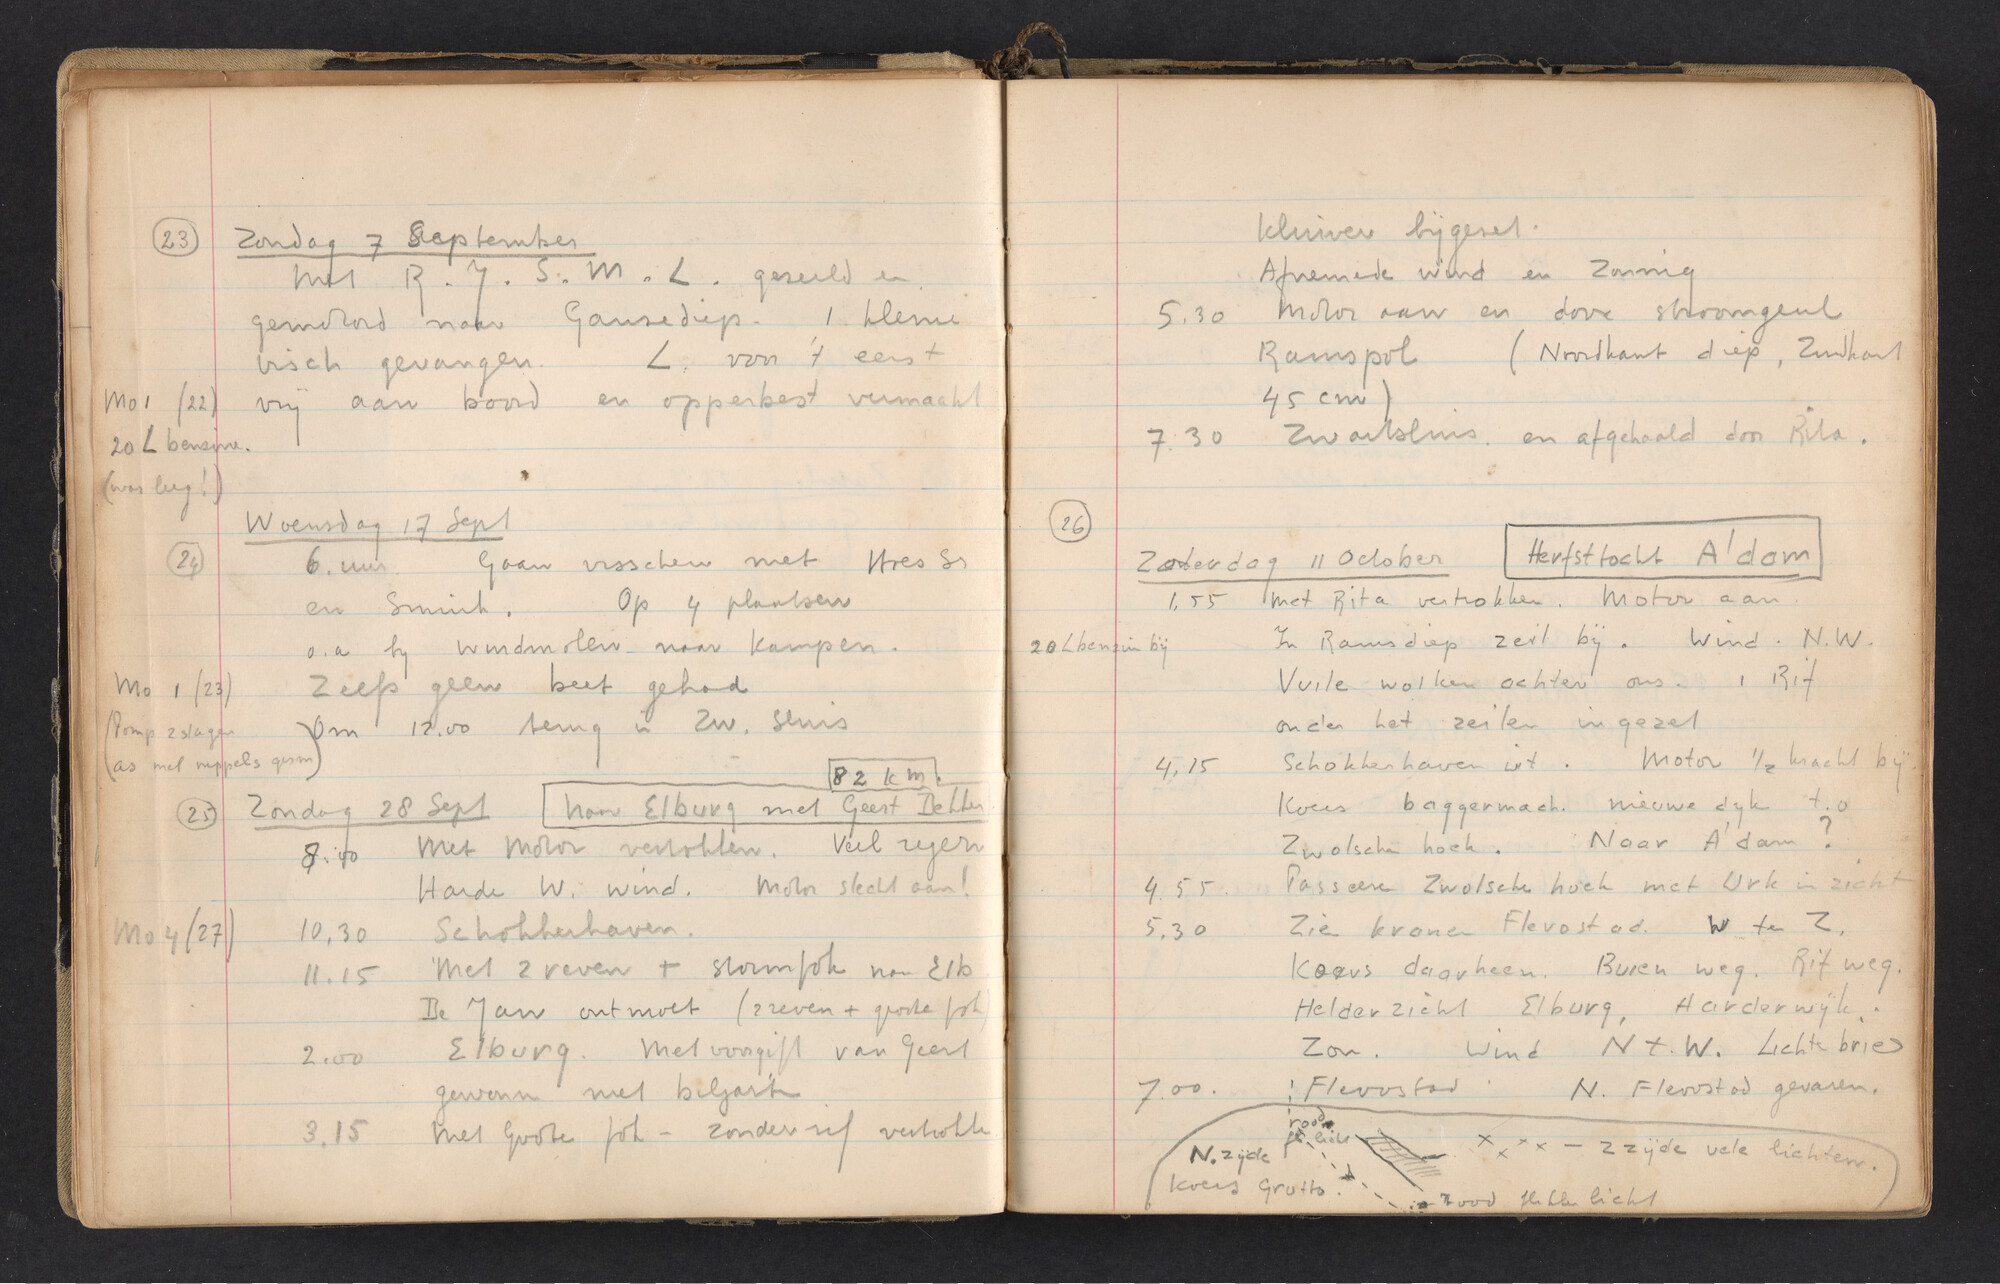 (23) Zondag 7 September
Met R. Y. S. M. L. gezeild en
gemotord naar Gansediep. 1 kleine
visch gevangen. L. voor 't eerst
Mo 1 (22) vrij aan boord en opperbest vermaakt
20 L benzine.
(was leeg!)
Woensdag 17 Sept
(24) 6. uur Gaan visschen met Hres Sr
en Smink. Op 4 plaatsen
o.a bij windmolen naar Kampen.
Mo 1 (23) Zelfs geen beet gehad
(Pomp 2 slagen Om 12.00 terug in Zw. Sluis
as met nippels gesm)
82 km.
(25) Zondag 28 Sept naar Elburg met Geert Dekker
8.00 Met Motor vertrokken. Veel regen
Harde W. wind. Motor slecht aan!
Mo 4 (27) 10.30 Schokkerhaven.
11.15 Met 2 reven + stormfok naar Elb
De Jan ontmoet (2 reven + groote fok)
2.00 Elburg. Met voorgift van Geert
gewonnen met biljarte
3.15 Met Groote fok - zonder rif vertrokke
kluiver bijgezet.
Afnemende wind en Zonnig
5.30 Motor aan en door stroomgeul
Ramspol (Noordkant diep, Zuidkant
45 cm)
7.30 Zwartsluis. en afgehaald door Rita.
(26)
Zaterdag 11 October Herfsttocht A'dam
1.55 Met Rita vertrokken. Motor aan.
20 L benzin bij In Ramsdiep zeil bij. Wind. N.W.
Vuile wolken achter ons. 1 Rif
onder het zeilen ingezet
4.15 Schokkerhaven uit. Motor 1/2 kracht bij.
Koers baggermach. nieuwe dyk t.o
Zwolsche hoek. Naar A'dam?
4.55. Passeere Zwolsche hoek met Urk in zicht
5.30 Zie kranen Flevostad. W te Z.
Koers daarheen. Buien weg. Rif weg.
Helder zicht Elburg, Harderwijk.
Zon. Wind N t. W. Lichte bries
7.00. Flevostad. N. Flevostad gevaren.
rood
licht
N. zijde x x x x - Z zijde vele lichten.
Koers Grutto. rood licht